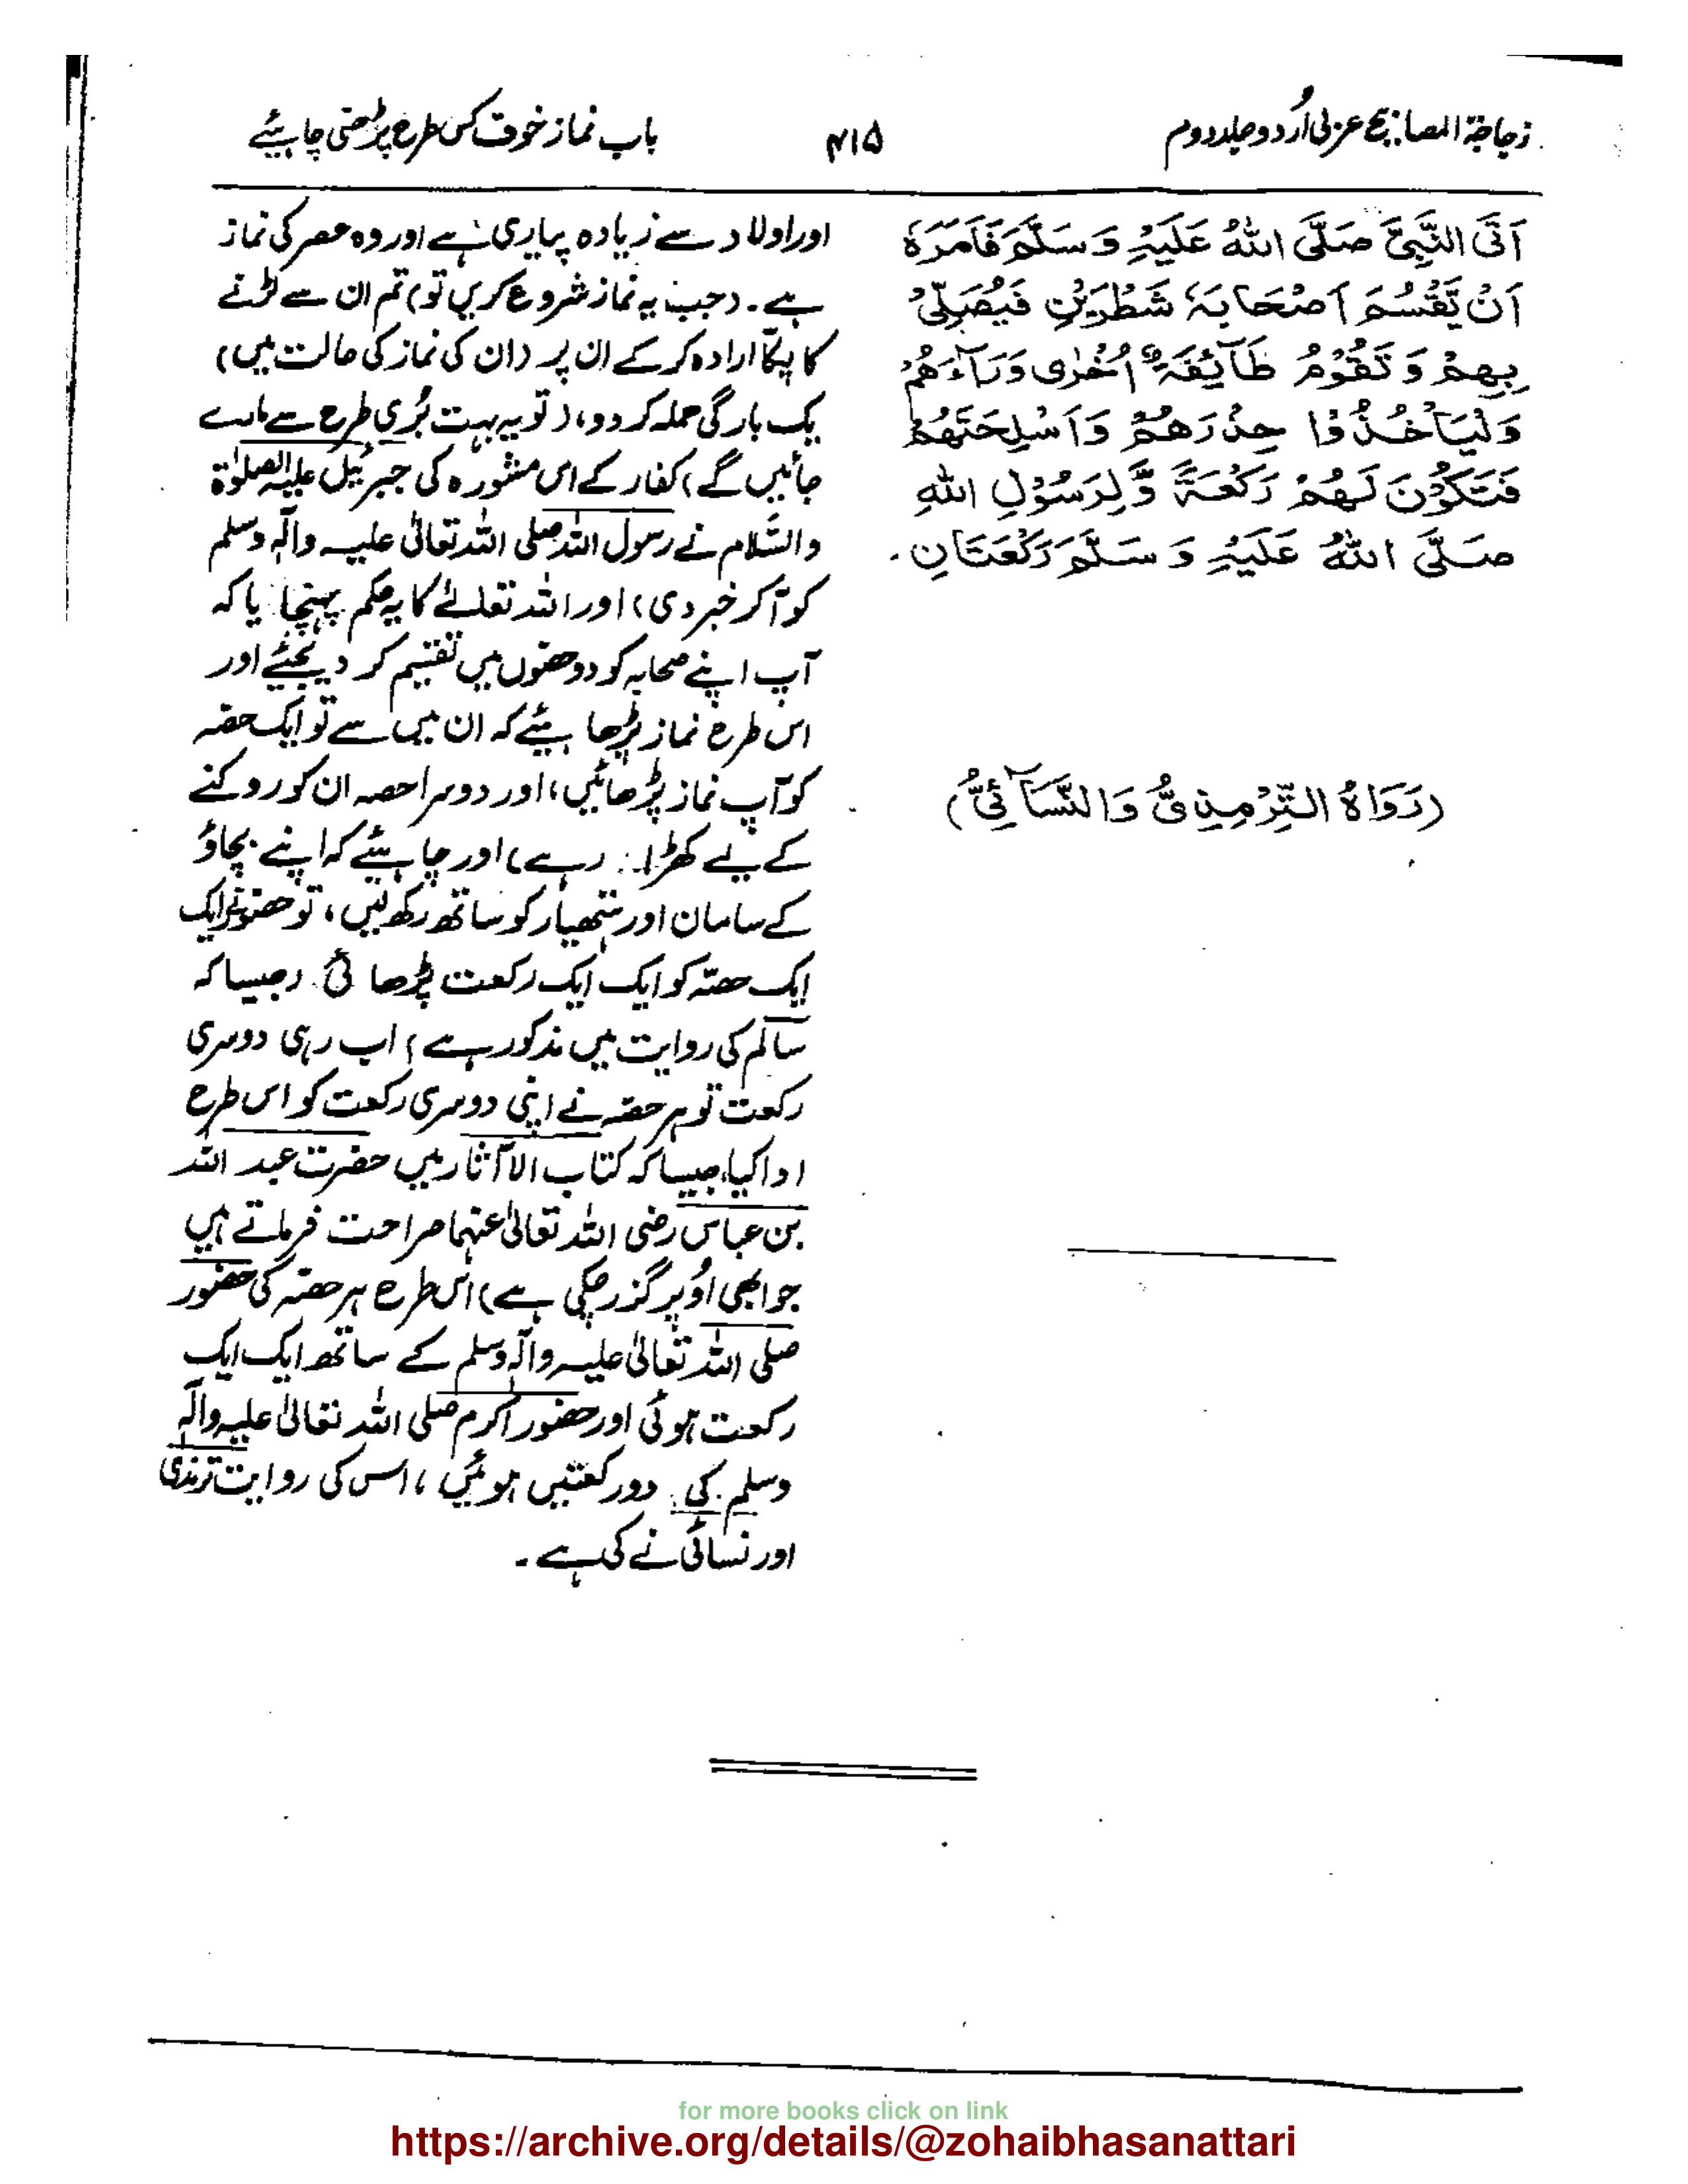 زجاجۃ المصابیح عربی اُردو جلد دوم
۴۱۵
باب نماز خوف کس طرح پڑھنی چاہیئے
اَتَی النَّبِیَّ صَلَّی اللّٰہُ عَلَیْہِ وَسَلَّمَ فَاَمَرَہٗ
اَنْ یَّقْسُمَ اَصْحَابَہٗ شَطْرَیْنِ فَیُصَلِّیْ
بِھِمْ وَ تَقُوْمُ طَآئِفَۃٌ اُخْرٰی وَرَآءَھُمْ
وَلْیَاْخُذُوْا حِذْرَھُمْ وَاَسْلِحَتَھُمْ
فَتَکُوْنَ لَھُمْ رَکْعَۃً وَّلِرَسُوْلِ اللّٰہِ
صَلَّی اللّٰہُ عَلَیْہِ وَ سَلَّمَ رَکْعَتَانِ۔
(رَوَاہُ التِّرْمِذِیُّ وَالنَّسَآئِیُّ)
اور اولاد سے زیادہ پیاری ہے اور وہ عصر کی نماز
ہے۔ (جب یہ نماز شروع کریں تو) تم ان سے لڑنے
کا پکّا ارادہ کر کے ان پر (ان کی نماز کی حالت میں)
یک بارگی حملہ کر دو، (تو یہ بہت بُری طرح سے مارے
جائیں گے) کفار کے اس مشورہ کی جبرئیل علیہ الصلوٰۃ
والسَّلام نے رسول اللہ صلی اللہ تعالیٰ علیہ وآلہٖ وسلم
کو آکر خبر دی) اور اللہ تعالےٰ کا یہ حکم پہنچا یا کہ
آپ اپنے صحابہ کو دو حصّوں میں تقسیم کر دیجیئے اور
اس طرح نماز پڑھا یئے کہ ان میں سے تو ایک حصّہ
کو آپ نماز پڑھائیں، اور دوسرا حصہ ان کو روکنے
کے لیے کھڑا رہے) اور چاہیئے کہ اپنے بچاؤ
کے سامان اور ہتھیار کو ساتھ رکھ لیں، تو حضور نے ایک
ایک حصّہ کو ایک ایک رکعت پڑھا ئی (جیسا کہ
سالم کی روایت میں مذکور ہے) اب رہی دوسری
رکعت تو ہر حصّہ نے اپنی دوسری رکعت کو اس طرح
ادا کیا، جیسا کہ کتاب الاٰ آثار میں حضرت عبد اللہ
بن عباس رضی اللہ تعالیٰ عنہما صراحت فرماتے ہیں
جو ابھی اُوپر گزر چکی ہے) اس طرح ہر حصّہ کی حضور
صلی اللہ تعالیٰ علیہ وآلہٖ وسلم کے ساتھ ایک ایک
رکعت ہوئی اور حضور اکرم صلی اللہ تعالیٰ علیہ وآلہٖ
وسلم کی دو رکعتیں ہوئیں، اس کی روایت ترمذی
اور نسائی نے کی ہے۔
for more books click on link
https://archive.org/details/@zohaibhasanattari